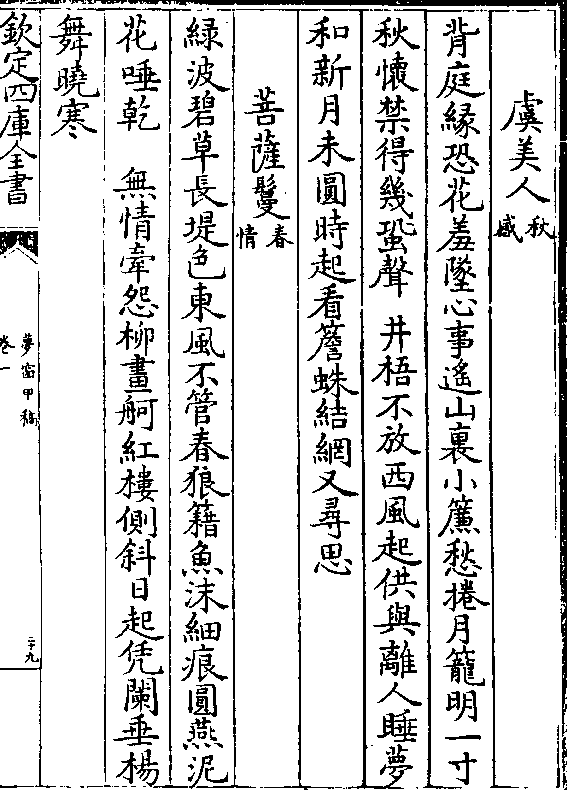 虞美人秋感
背庭緣恐花羞墜心事遙山裏小簾愁捲月籠明一寸
秋懷禁得幾蛩聲　井梧不放西風起供與離人睡夢
和新月未圓時起看簷蛛結網又尋思
菩薩鬘春情
緑波碧草長堤色東風不管春狼籍魚沫細痕圓燕泥
花唾乾　無情牽怨柳畫舸紅樓側斜日起凭闌垂楊
舞曉寒
欽定四庫全書
夢窗甲稿
卷一
二十九